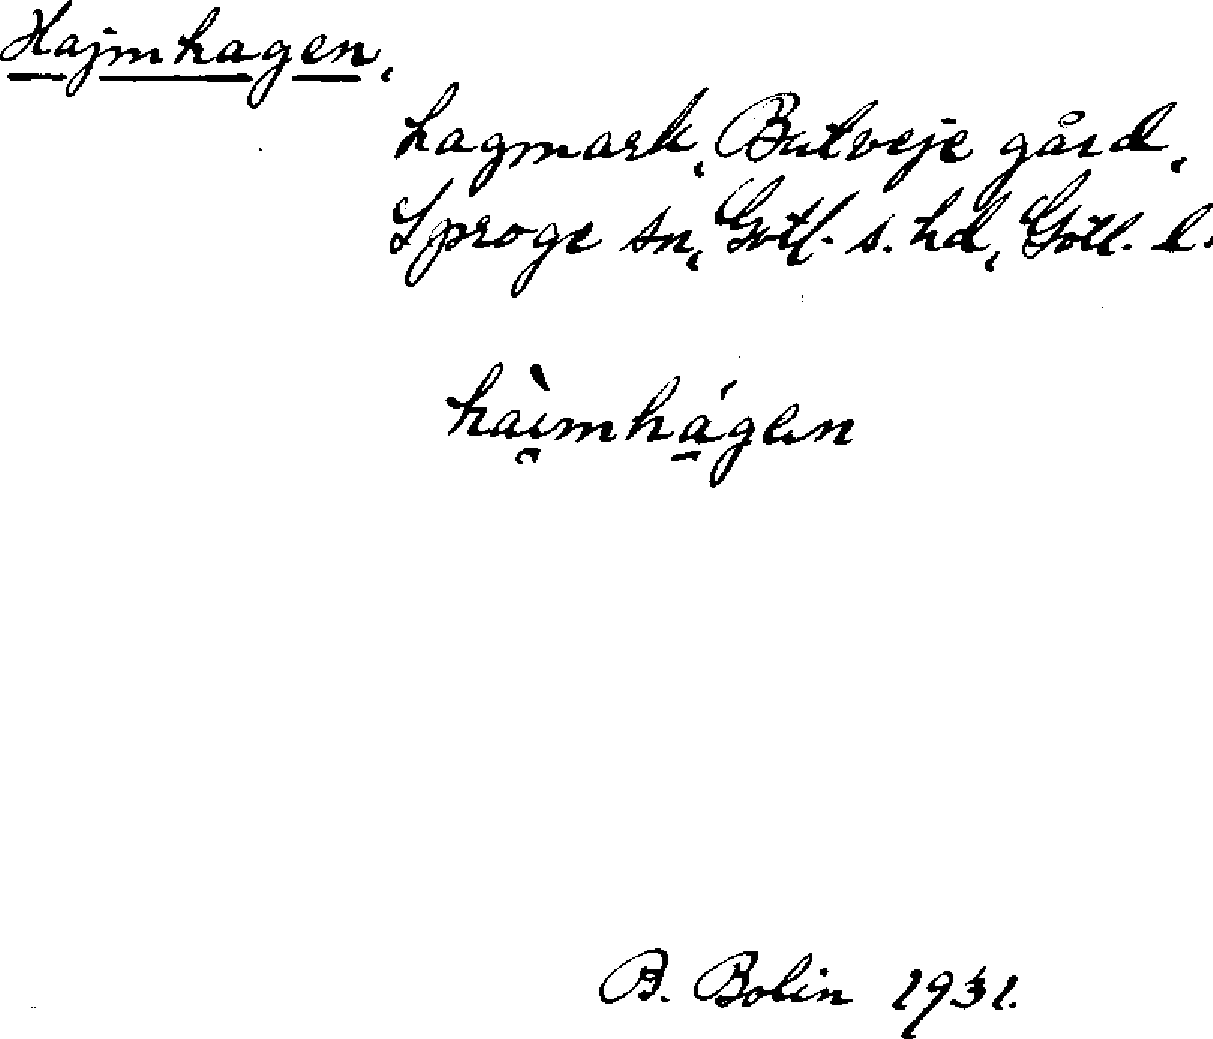 Hajmhagen,
hagmark, Butveje gård,
Sproge sn, Gotl. s. hd, Gotl. l.
haì̯mhá̱gən
B. Bolin 1931.